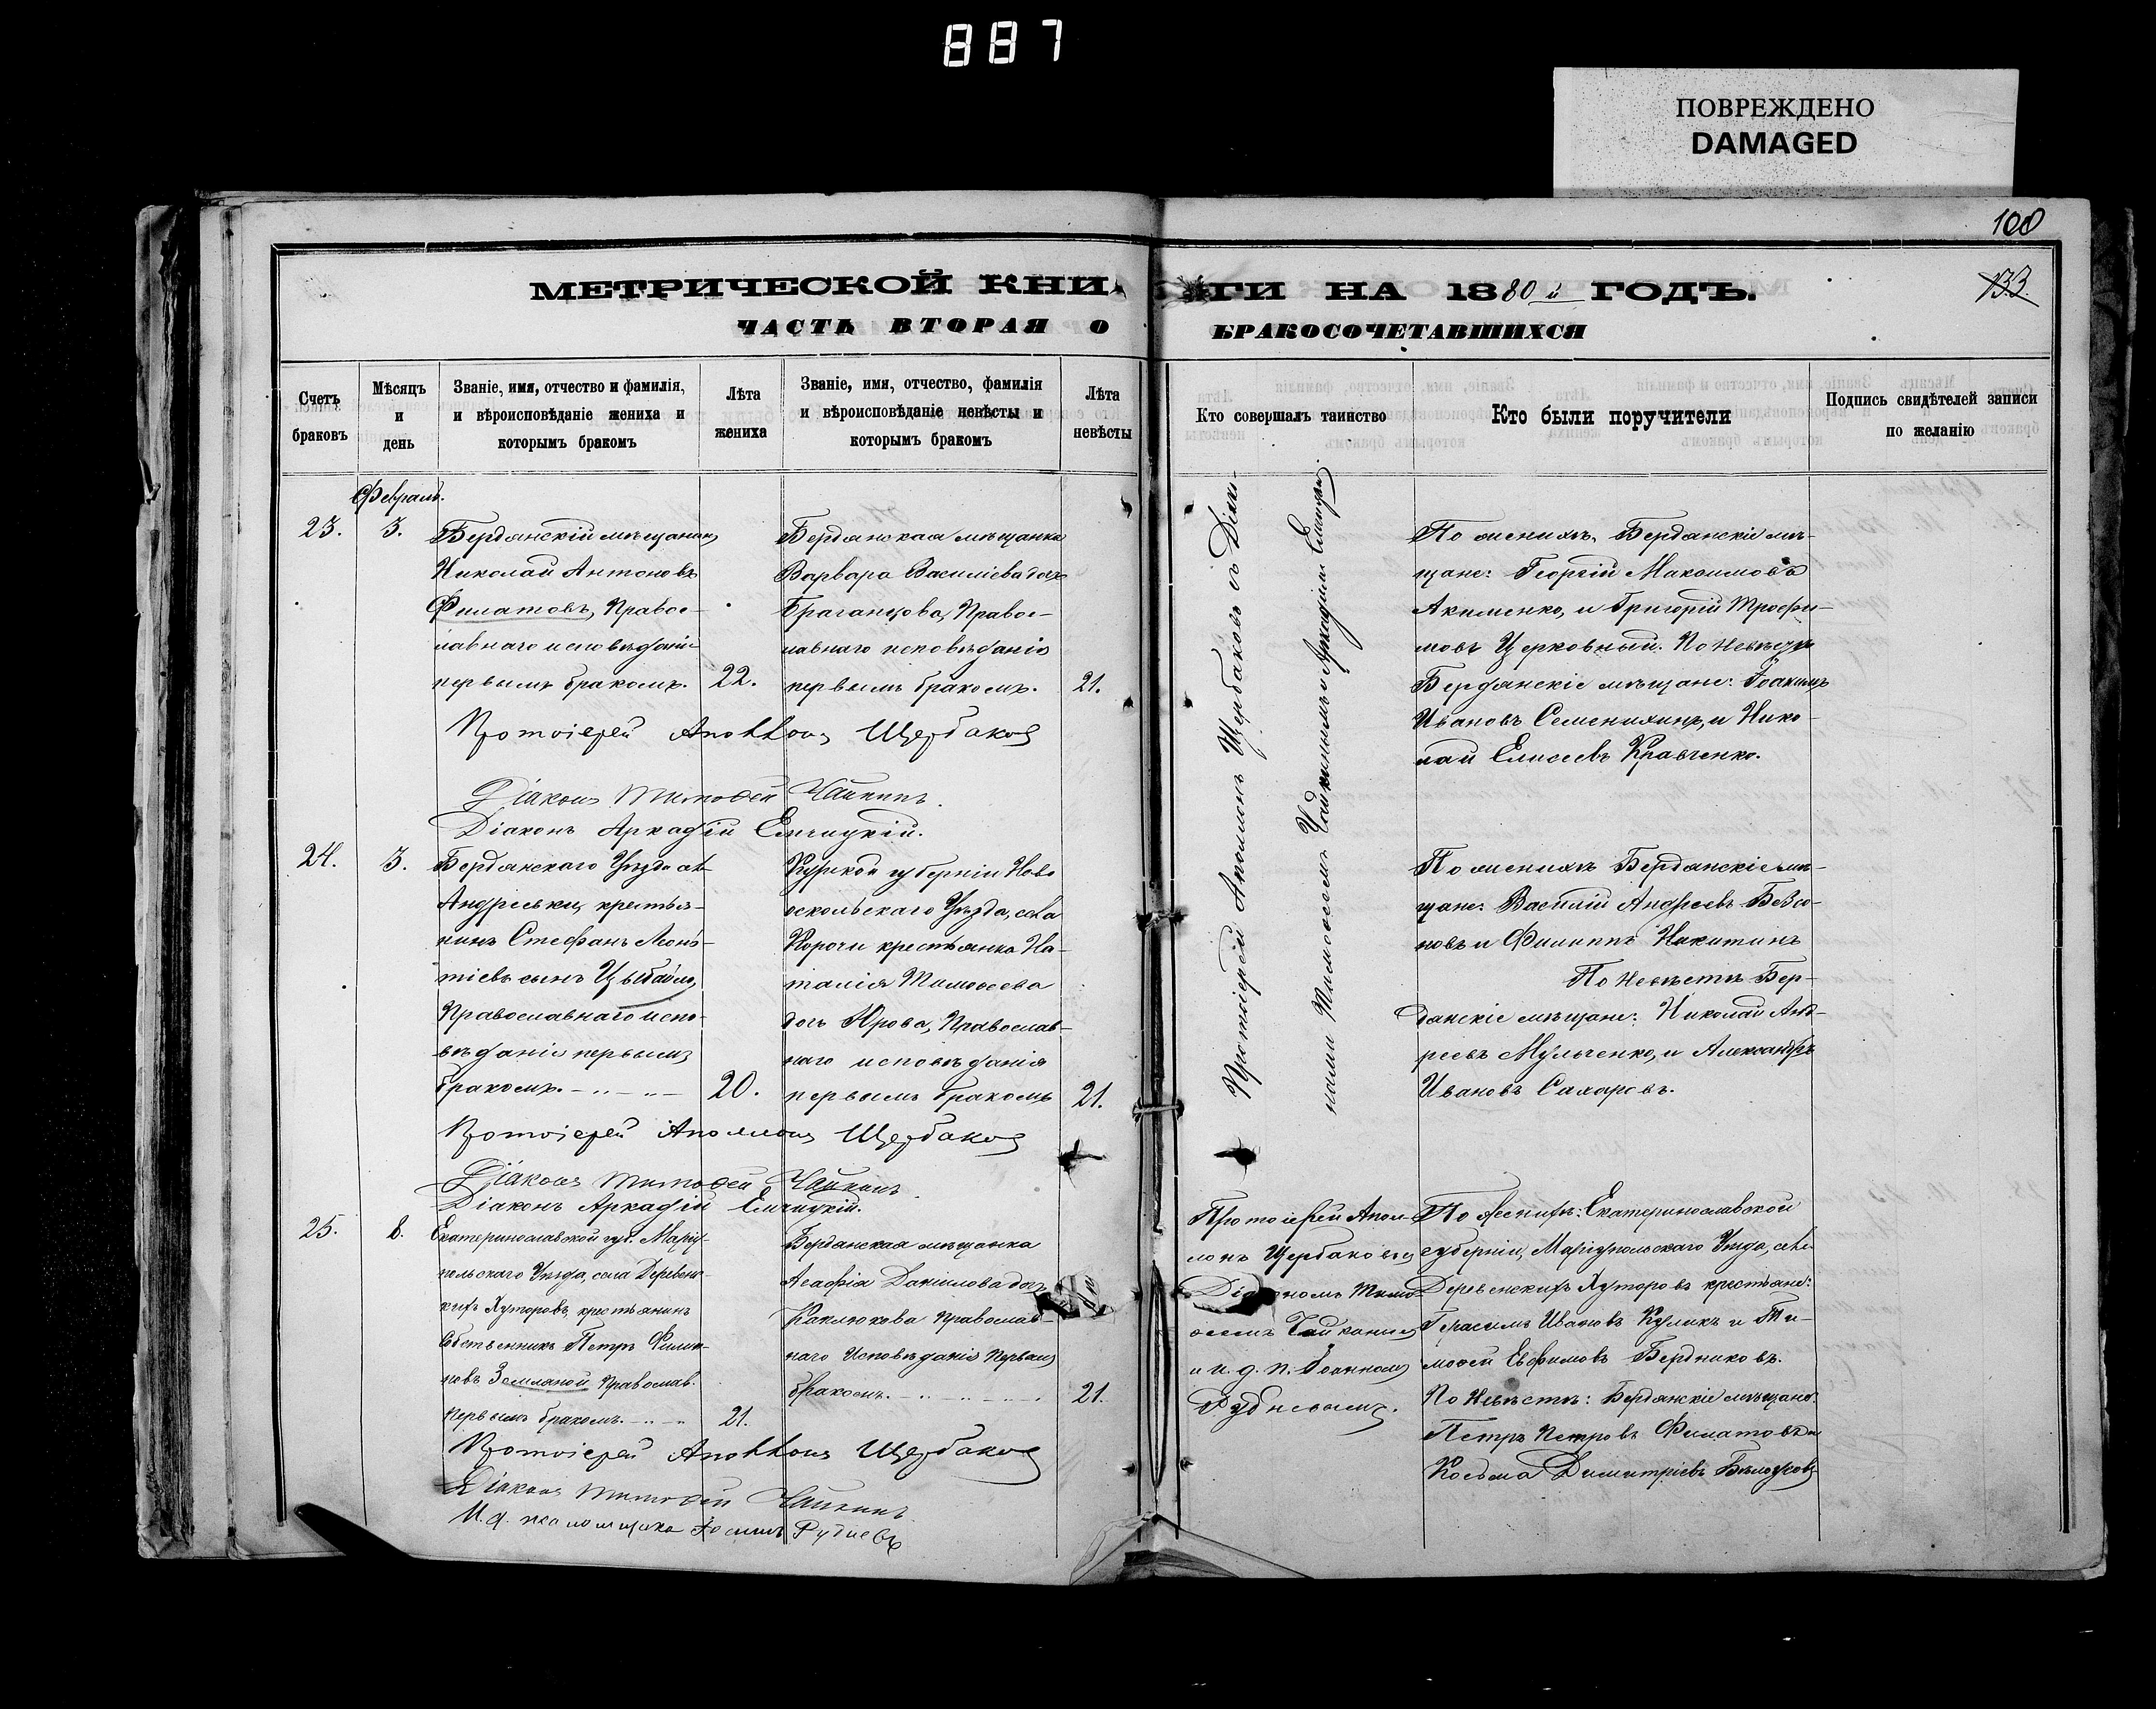 887
ПОВРЕЖДЕНО
DAMAGED
100
133.
МЕТРИЧЕСКОЙ КНИГИ НА 1880й ГОДЪ.
ЧАСТЬ ВТОРАЯ О БРАКОСОЧЕТАВШИХСЯ
Счетъ
браковъ
Мѣсяцъ
и
день
Званіе, имя, отчество и фамилія,
и вѣроисповѣданіе жениха и
которымъ бракомъ
Лѣта
жениха
Званіе, имя, отчество, фамилія
и вѣроисповѣданіе невѣсты и
которымъ бракомъ
Лѣта
невѣсты
Кто совершалъ таинство
Кто были поручители
Подпись свидѣтелей записи
по желанію
Февраль.
23.
3.
Бердянскій мѣщанинъ
Николай Антоновъ
Филатовъ, Правос-
лавнаго исповѣданія
первымъ бракомъ.
22.
Бердянская мѣщанка
Варвара Василіева дочь
Браганцова, Правос-
лавнаго исповѣданія
первымъ бракомъ.
21.
Протоіерей Аполлонъ Щербаковъ съ Діако-
нами Тимоѳеемъ Чайкинымъ и Аркадіемъ
По женихѣ, Бердянскіе мѣ-
щане: Георгій Максимовъ
Акименко, и Григорій Трофи-
мовъ Церковный. По Невѣстѣ
Бердянскіе мѣщане: Іоакимъ
Ивановъ Семенихинъ, и Нико-
лай Елисеевъ Кравченко.
Протоіерей Аполлонъ Щербаковъ
Діаконъ Тимоѳей Чайкинъ.
Діаконъ Аркадій
24.
3.
Бердянскаго Уѣзда сел.
Андреевки, крестья-
нинъ Стефанъ Леон-
тіевъ сынъ Цыбайло,
Православнаго испо-
вѣданія первымъ
бракомъ.
20.
Курской губерніи Ново
оскольскаго Уѣзда, села
Корочи крестьянка На-
талія Тимоѳеева
дочь Ярова, Православ-
наго исповѣданія
первымъ бракомъ
21.
По женихѣ Бердянскіе мѣ-
щане: Василій Андреевъ Безсо-
новъ и Филиппъ Никитинъ
По Невѣстѣ Бер-
дянскіе мѣщане: Николай Анд-
реевъ Мульченко, и Александръ
Ивановъ Сахаровъ.
Протоіерей Аполлонъ Щербаковъ
Діаконъ Тимоѳей Чайкинъ.
Діаконъ Аркадій
25.
8.
Екатеринославской губ. Маріу-
польскаго Уѣзда, села Деревен-
скихъ Хуторовъ, крестьянинъ
собственникъ Петръ Филип-
повъ Земляной Православ.
первымъ бракомъ.
21.
Бердянская мѣщанка
Агафія Даніилова дочь
Каклюкова Православ-
наго Исповѣданія Первымъ
бракомъ.
21.
Протоіерей Апол-
лонъ Щербаковъ съ
Діакономъ Тимо-
ѳеемъ Чайкинымъ
и и. д. п. Іоанномъ
Рудневымъ.
По Женихѣ: Екатеринославской
губерніи, Маріупольскаго Уѣзда, села
Деревенскихъ Хуторовъ крестьяне:
Герасимъ Ивановъ Куликъ и Ти-
моѳей Евфимовъ Бердниковъ.
По Невѣстѣ: Бердянскіе мѣщане:
Петръ Петровъ Филатовъ и
Косьма Димитріевъ
Протоіерей Аполлонъ Щербаковъ
Діаконъ Тимоѳей Чайкинъ.
И. д. псаломщика Іоаннъ Рудневъ